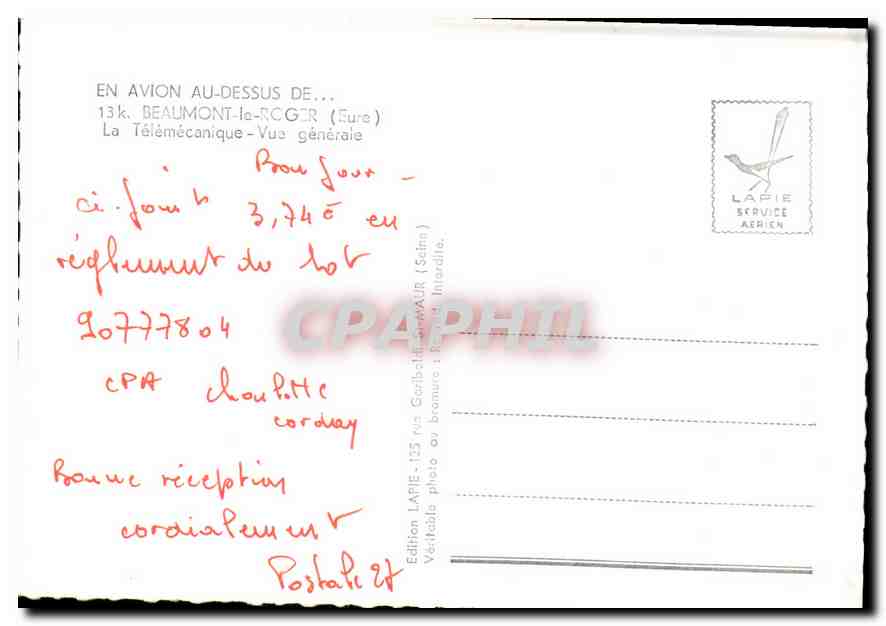 EN AVION AU-DESSUS DE...
13k. BEAUMONT-le-ROGER (Eure)
La Télémécanique - Vue générale
Bonjour -
ci-joint 3,74€ en
réglement du lot
90777804
CPA Charlotte
corday
Bonne réception
cordialement
Postale 27
Edition LAPIE - 125 rue Garibaldi, St-MAUR (Seine)
Véritable photo au bromure : Reprod. Interdite.
LAPIE
SERVICE
AERIEN
CPAPHIL